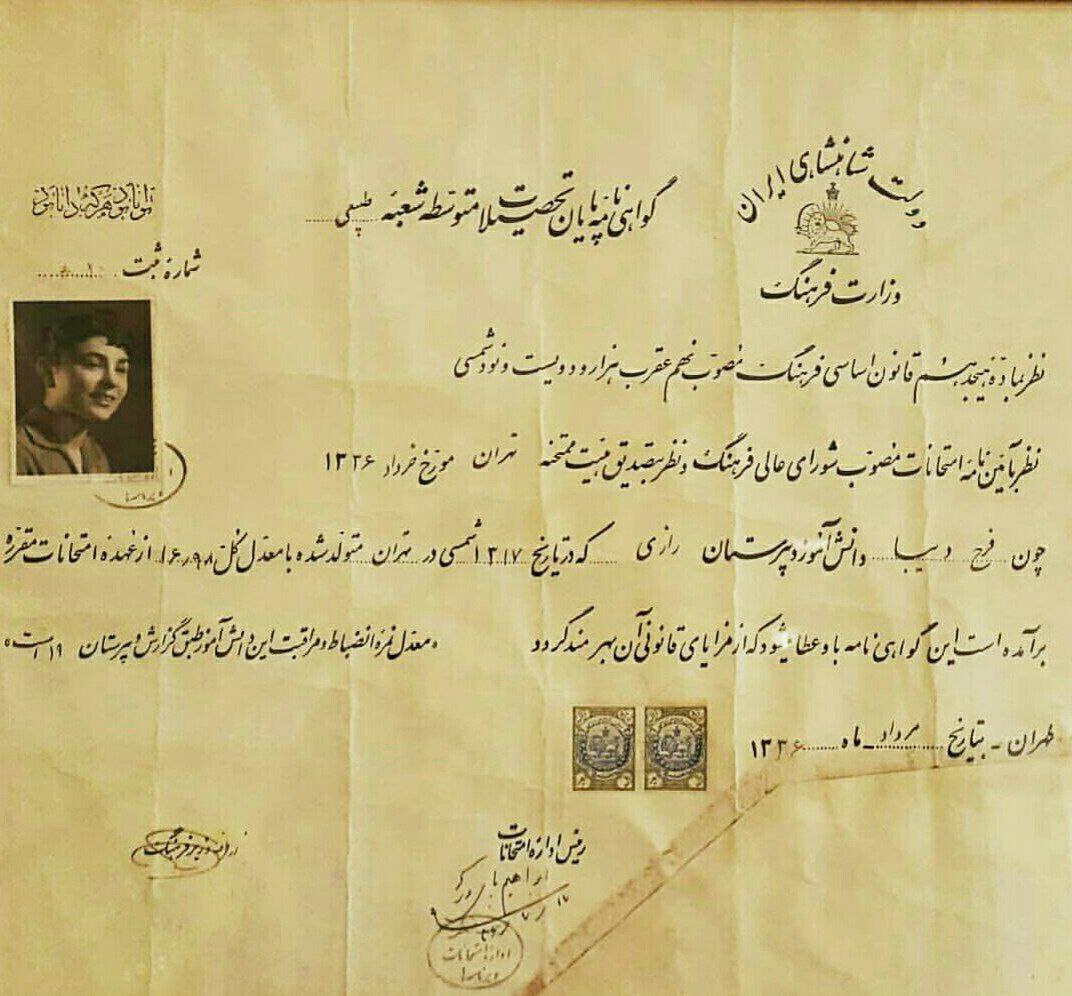 دولت شاهنشاهی ایران
وزارت فرهنگ
گواهی نامه پایان تحصیلات متوسطه شعبه طبیعی
توانا بود هر که دانا بود
شماره ثبت
نظر بماده هیجدهم قانون اساسی فرهنگ مصوب نهم عقرب هزار و دویست و نود شمسی
نظر بآئین نامه امتحانات مصوب شورای عالی فرهنگ و نظر بتصدیق هیئت ممتحنه تهران مورخ خرداد ۱۳۳۶
چون فرح دیبا دانش آموز دبیرستان رازی که در تاریخ ۱۳۱۷ شمسی در تهران متولد شده با معدل کل ۱۶٫۹۸ از عهده امتحانات مقرره
برآمده است این گواهی نامه باو عطا میشود که از مزایای قانونی آن بهره مند گردد ٠ معدل نمره انضباط و مراقبت این دانش آموز طبق گزارش دبیرستان ۱۹ است ٠
طهران - بتاریخ مرداد ماه ۱۳۳۶
رئیس اداره امتحانات
وزیر فرهنگ
اداره امتحانات